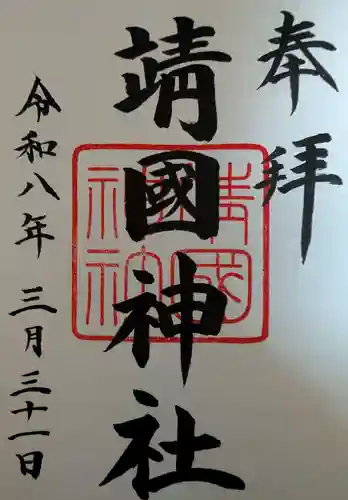 奉拝
靖國神社
靖國神社
令和八年三月三十一日